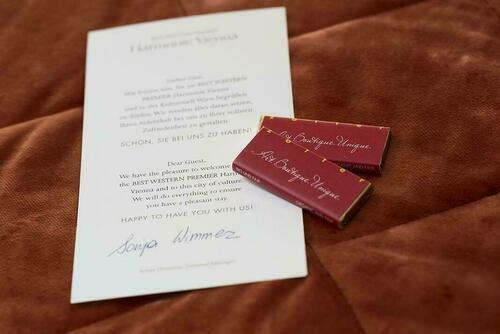 BEST WESTERN PREMIER
Harmonie Vienna
Lieber Gast,
Wir freuen uns, Sie im BEST WESTERN
PREMIER Harmonie Vienna
und in der Kulturstadt Wien begrüßen
zu dürfen. Wir werden alles daran setzen,
Ihren Aufenthalt bei uns zu Ihrer vollsten
Zufriedenheit zu gestalten.
SCHÖN, SIE BEI UNS ZU HABEN!
Dear Guest,
We have the pleasure to welcome
the BEST WESTERN PREMIER Harm
Vienna and to this city of culture.
We will do everything to ensure
you have a pleasant stay.
HAPPY TO HAVE YOU WITH US!
Sonja Wimmer
Sonja Wimmer, General Manager
Art. Boutique. Unique.
Art. Boutique. Unique.